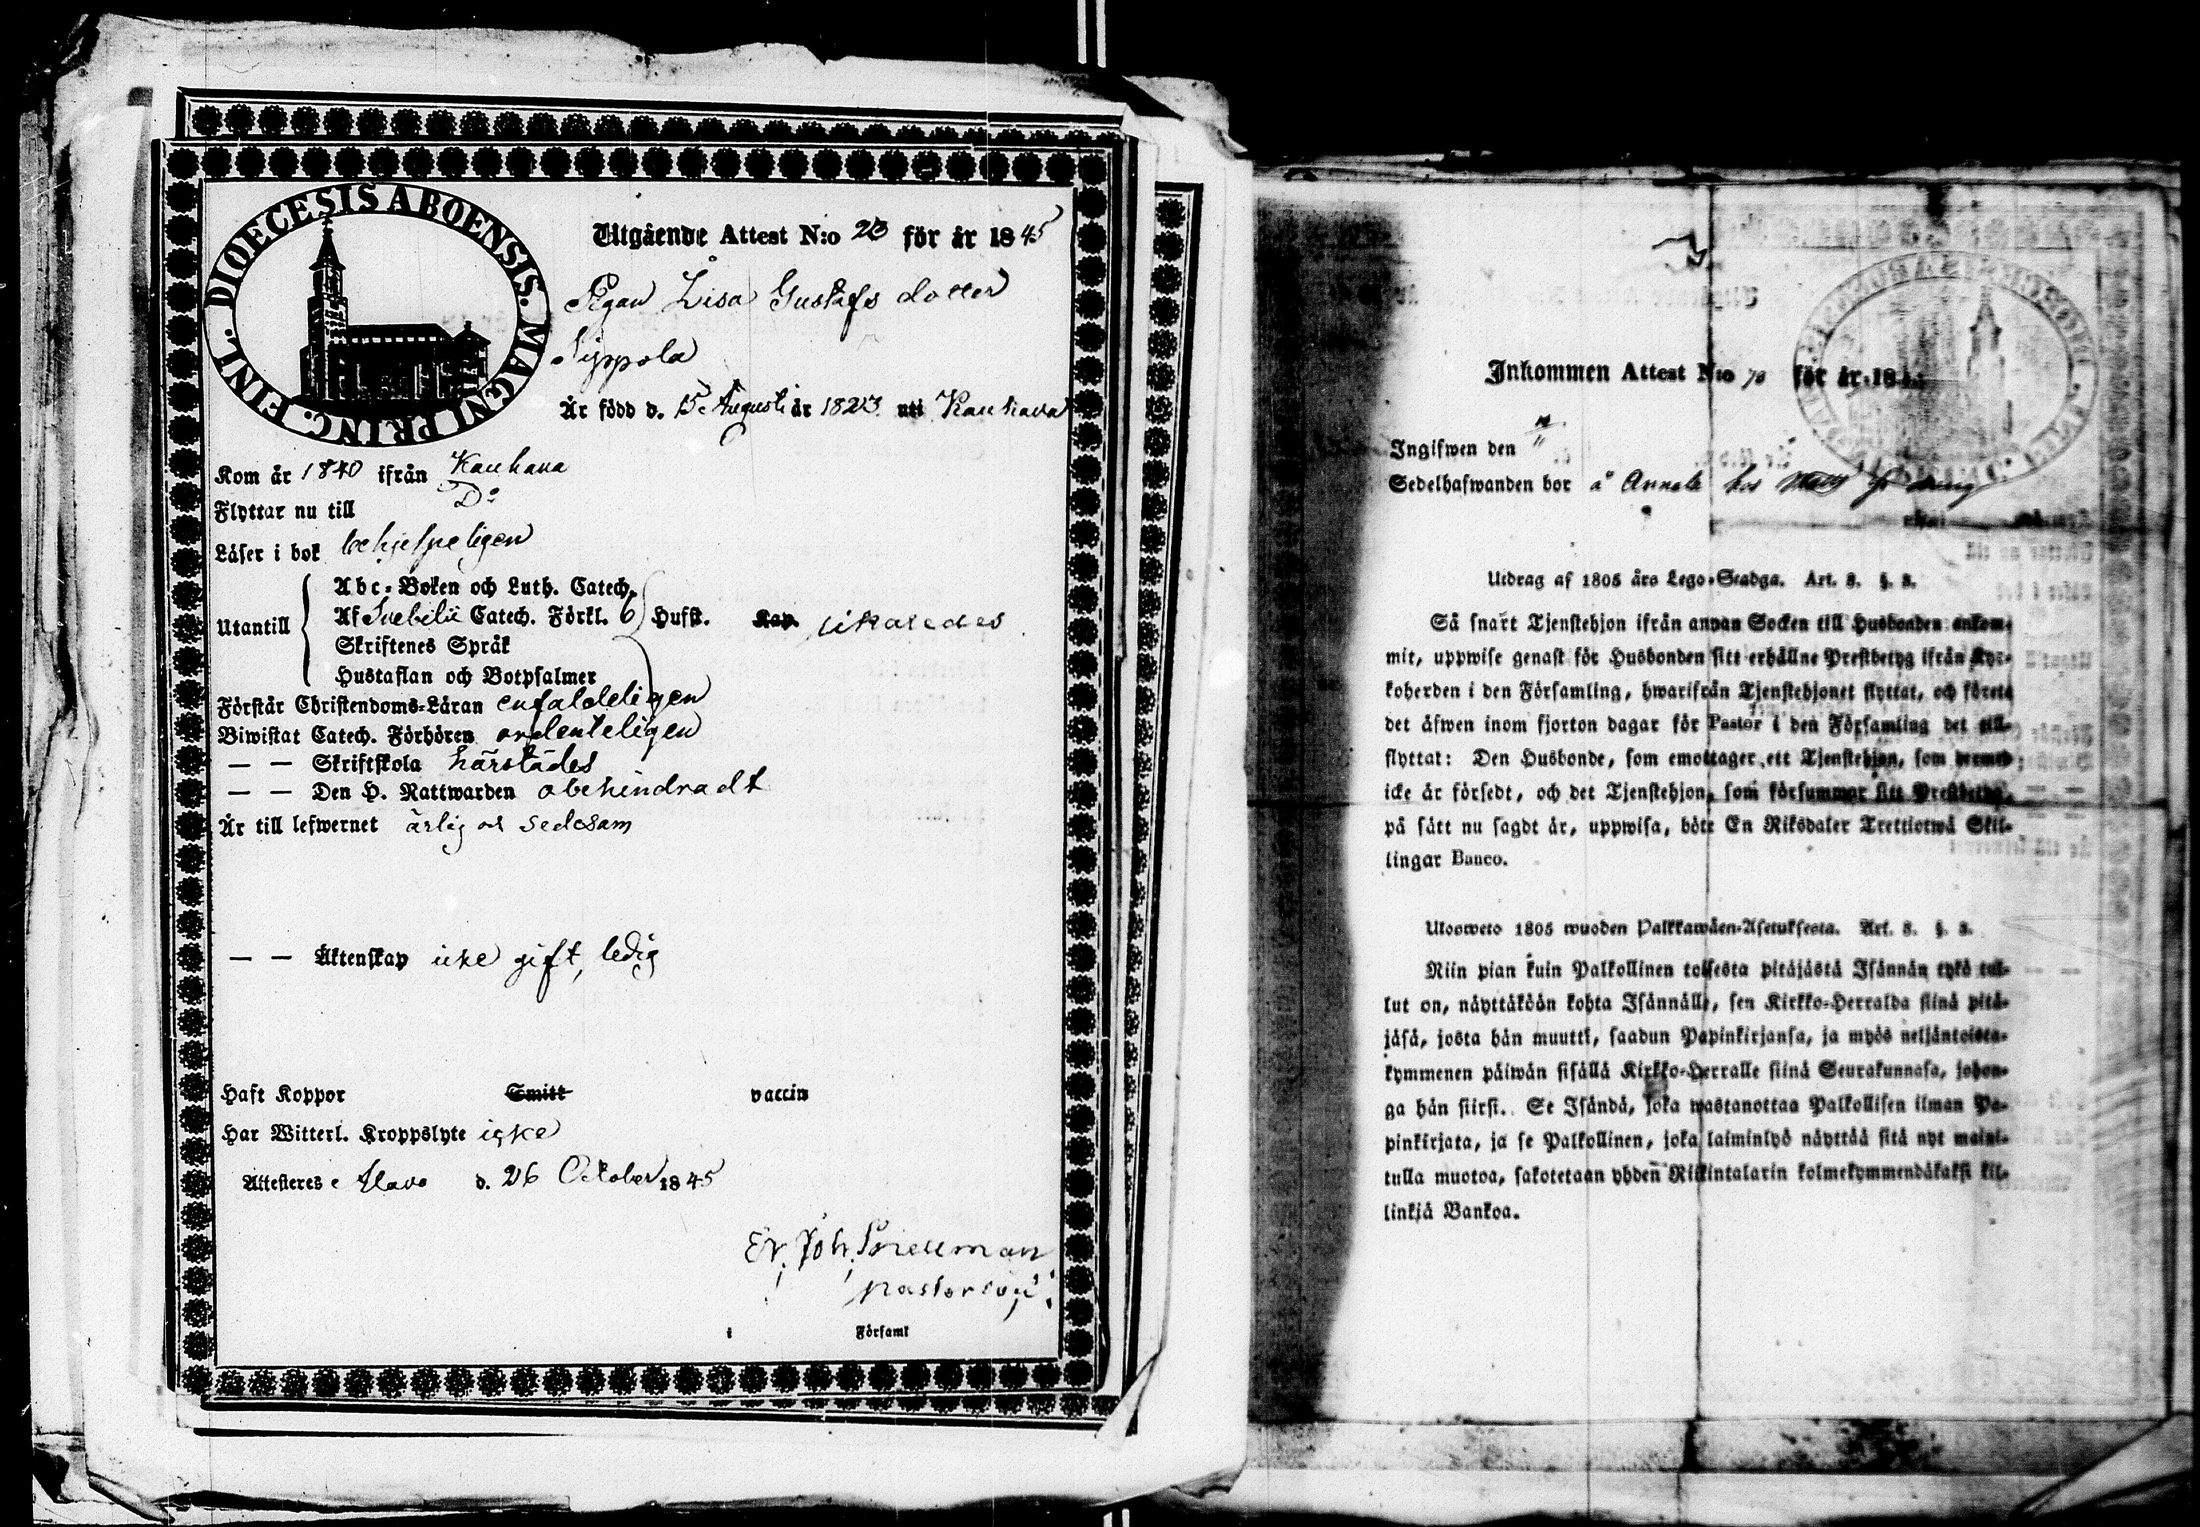 DIOECESIS ABOENSIS. MAGNI PRINC. FINL.
Utgående Attest N:o 23 för år 1845
Pigan Lisa Gustafs dotter
Sippola
Är född d. 15 Augusti år 1823 uti Kauhava
Kom år 1840 ifrån Kauhava
Flyttar nu till Do
Läser i bok behjelpeligen
Utantill
Abc-Boken och Luth. Catech.
Af Svebelii Catech. Förkl. 6 Hufst. Kap. likaledes
Skriftenes Språk
Hustaflan och Botpsalmer
Förstår Christendoms-Läran enfaldeligen
Biwistat Catech. Förhören ordenteligen
— — Skriftskola härstädes
— — Den H. Nattwarden obehindradt
Är till lefwernet ärlig och sedesam
— — Äktenskap icke gift, ledig
Haft Koppor Smitt vaccin
Har Witterl. Kroppslyte icke
Attesteres i Alavo d. 26 October 1845
Er. Joh.
pastor
i Församl
Inkommen Attest N:o 70 för år 18
Ingifwen den
Sedelhafwanden bor å Annala hos Matts
Utdrag af 1805 års Lego-Stadga. Art. 8. §. 3.
Så snart Tjenstehjon ifrån annan Socken till Husbonden ankom-
mit, uppwise genast för Husbonden sitt erhållne Prestbetyg ifrån Kyr-
koherden i den Församling, hwarifrån Tjenstehjonet flyttat, och förete
det äfwen inom fjorton dagar för Pastor i den Församling det till-
flyttat: Den Husbonde, som emottager ett Tjenstehjon, som dermed
icke är försedt, och det Tjenstehjon, som försummar sitt Prestbetyg,
på sätt nu sagdt är, uppwisa, böte En Riksdaler Trettiotwå Skil-
lingar Banco.
Ulosweto 1805 wuoden Palkkawäen-Asetuksesta. Art. 8. §. 3.
Niin pian kuin Palkollinen toisesta pitäjästä Isännän tykö tul-
lut on, näyttäköön kohta Isännälle, sen Kirkko-Herralda siinä pitä-
jäsä, josta hän muutti, saadun Papinkirjansa, ja myös neljäntoista-
kymmenen päiwän sisällä Kirkko-Herralle siinä Seurakunnasa, johon-
ga hän siirsi. Se Isändä, joka wastanottaa Palkollisen ilman Pa-
pinkirjata, ja se Palkollinen, joka laiminlyö näyttää sitä nyt maini-
tulla muotoa, sakotetaan yhden Riikintalarin kolmekymmendäkaksi kil-
linkiä Bankoa.